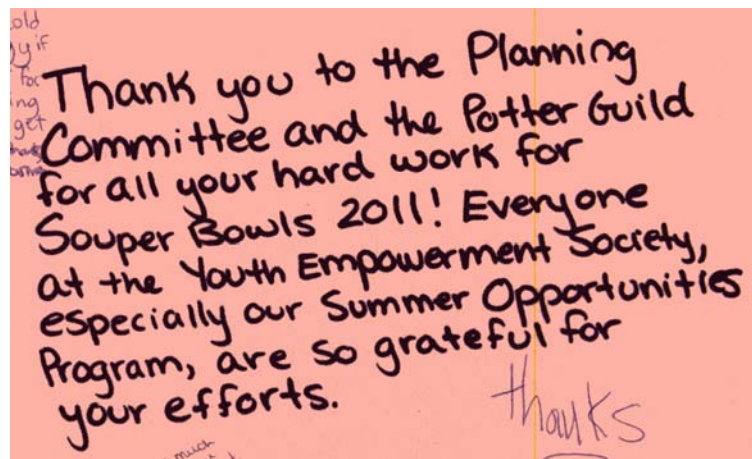 old
if
for
ing
get
Thank you to the Planning
Committee and the Potter Guild
for all your hard work for
Souper Bowls 2011! Everyone
at the Youth Empowerment Society,
especially our Summer Opportunities
Program, are so grateful for
your efforts.
thanks
much